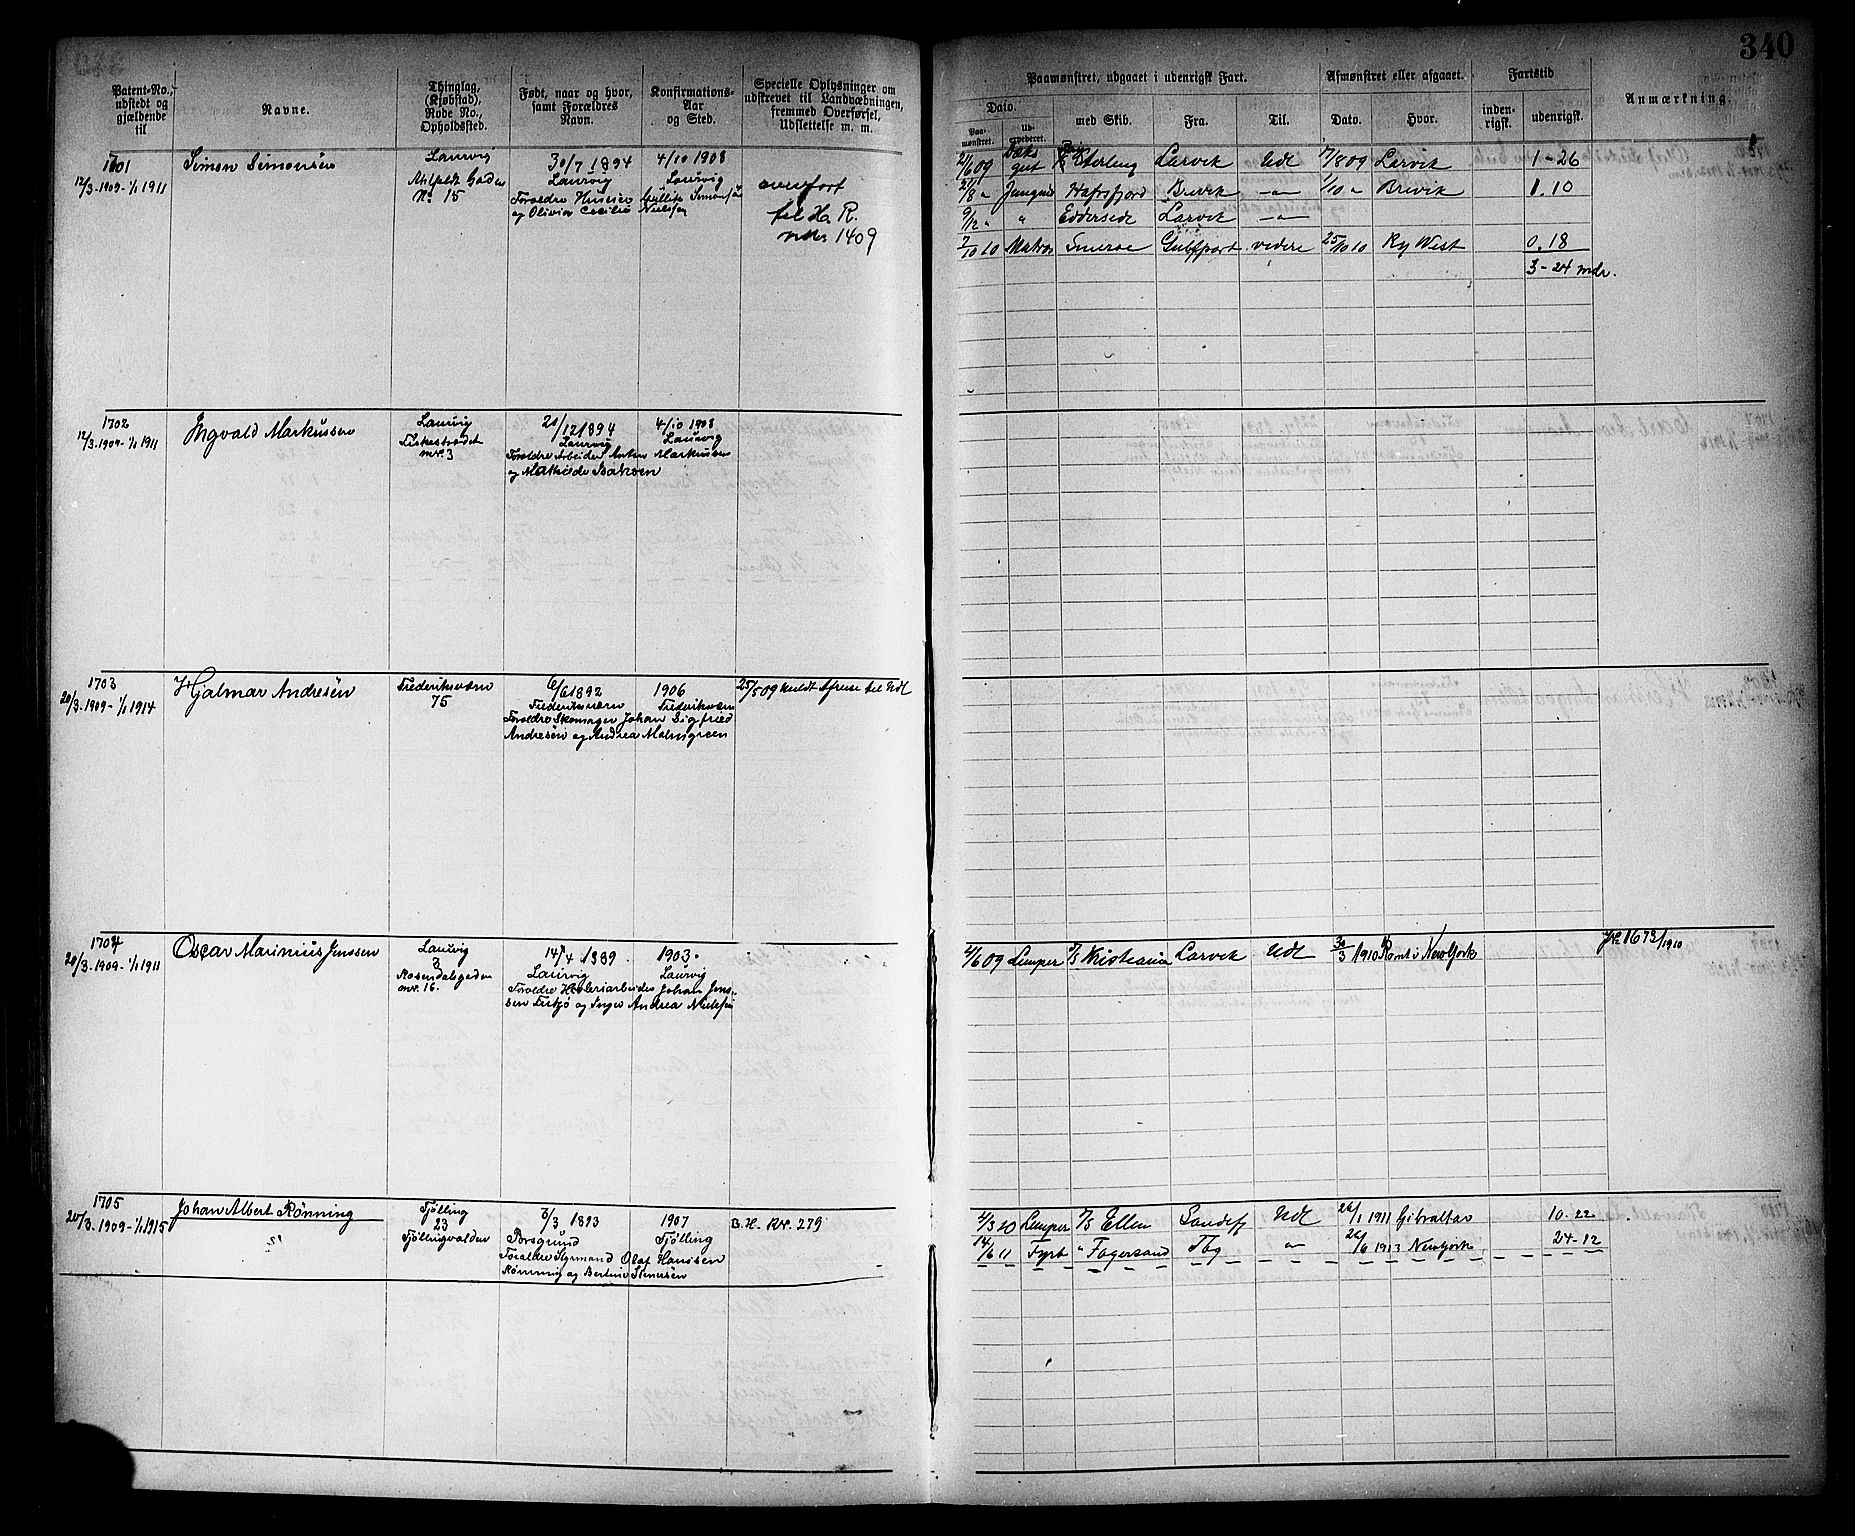 340
Patent-No., udstedt og gjældende til
Navne.
Thinglag, (Kjøbstad), Rode No., Opholdssted.
Født, naar og hvor, samt Forældres Navn.
Konfirmations-Aar og Sted.
Specielle Oplysninger om udskrevet til Landværbningen, fremmed Overførsel, Udslettelse m. m.
Paamønstret, udgaaet i udenrigsk Fart.
Afmønstret eller afgaaet.
Fartstid
Anmærkning.
Dato.
Paa-mønstret.
med Skib.
Fra.
Til.
Dato.
Hvor.
inden-rigsk.
udenrigsk.
1701
12/3.1909-1/1 1911
Simon Simonsen
Laurvig
Gaden
No 15
30/7 1894
Laurvig
Forældre
og Olivia Cecilie Nielsen
4/10 1908
Laurvig
overført
til H. R.
1409
21/6 09 Dæks gut Sterling Larvik Udl 7/8 09 Larvik 1-26
27/8 " Jungm Hafrsfjord Brevik -"- 1/10 " Brevik 1.10
9/12 " " Eddersede Larvik -"-
7/10 10 Matros Smeroe Gulfport videre 25/10 10 Ky West 0.18
3-24 mdr.
1702
12/3.1909-1/1 1911
Ingvald Markussen
Laurvig
Fiskestrædet
nr. 3
20/12 1894
Laurvig
Forældre Arbeider Anton Markussen
og Mathilde Isaksen
4/10 1908
Laurvig
1703
20/3.1909-1/1 1914
Hjalmar Andresen
Frederiksværn
75
6/6 1892
Frederiksværn
Forældre Skomager Johan Sigfried
Andresen og Andrea Malmgreen
1906
Frederiksværn
25/5 09 meldt Afreise til Udl
1704
20/3.1909-1/1 1911
Oscar Marinius Jenssen
Laurvig
3
Rosendalsgaden
nr. 16.
14/4 1889.
Laurvig
Forældre Høvleriarbeider Johan Jens-
sen Furtjø og Inger Andrea Nielsen
1903.
Laurvig
4/6 09 Lemper D/S Kristiania Larvik Udl 30/3 1910 Rømt i New York
JN 1673/1910
1705
20/3.1909-1/1 1915
Johan Albert Rønning
Tjølling
23
Tjøllingvolden
8/3 1893
Porsgrund
Forældre Styrmand Olaf Hanssen
Rønning og Bertine Simersen
1907
Tjølling
B. H. Rr. 279
4/3 10 Lemper D/S Ellen Sandefj Udl 26/1 1911 Gibraltar 10-22
14/6 11 Fyrb " Fagersand Tbg " 26/6 1913 New York 24-12